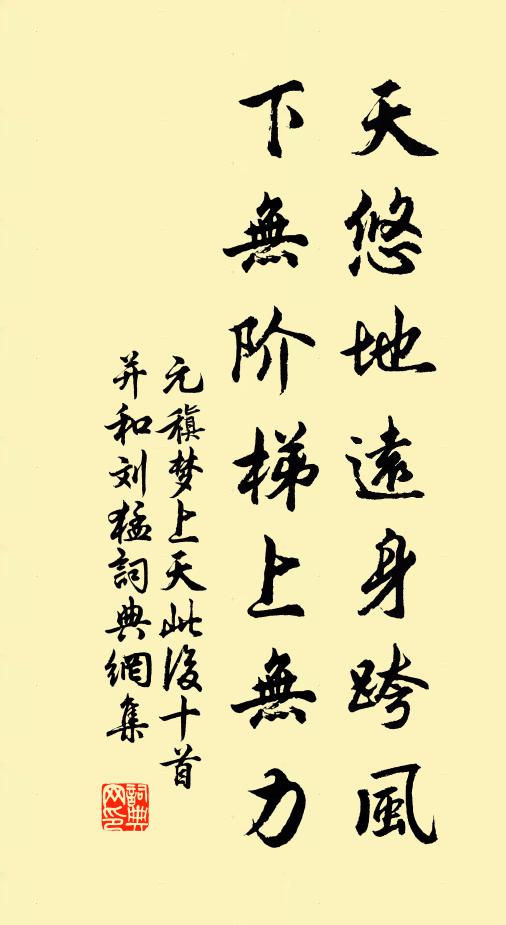 天悠地遠身跨風
下無阶梯上無力
元稹梦上天此後十首
并和刘猛詞典網集
詞典網印